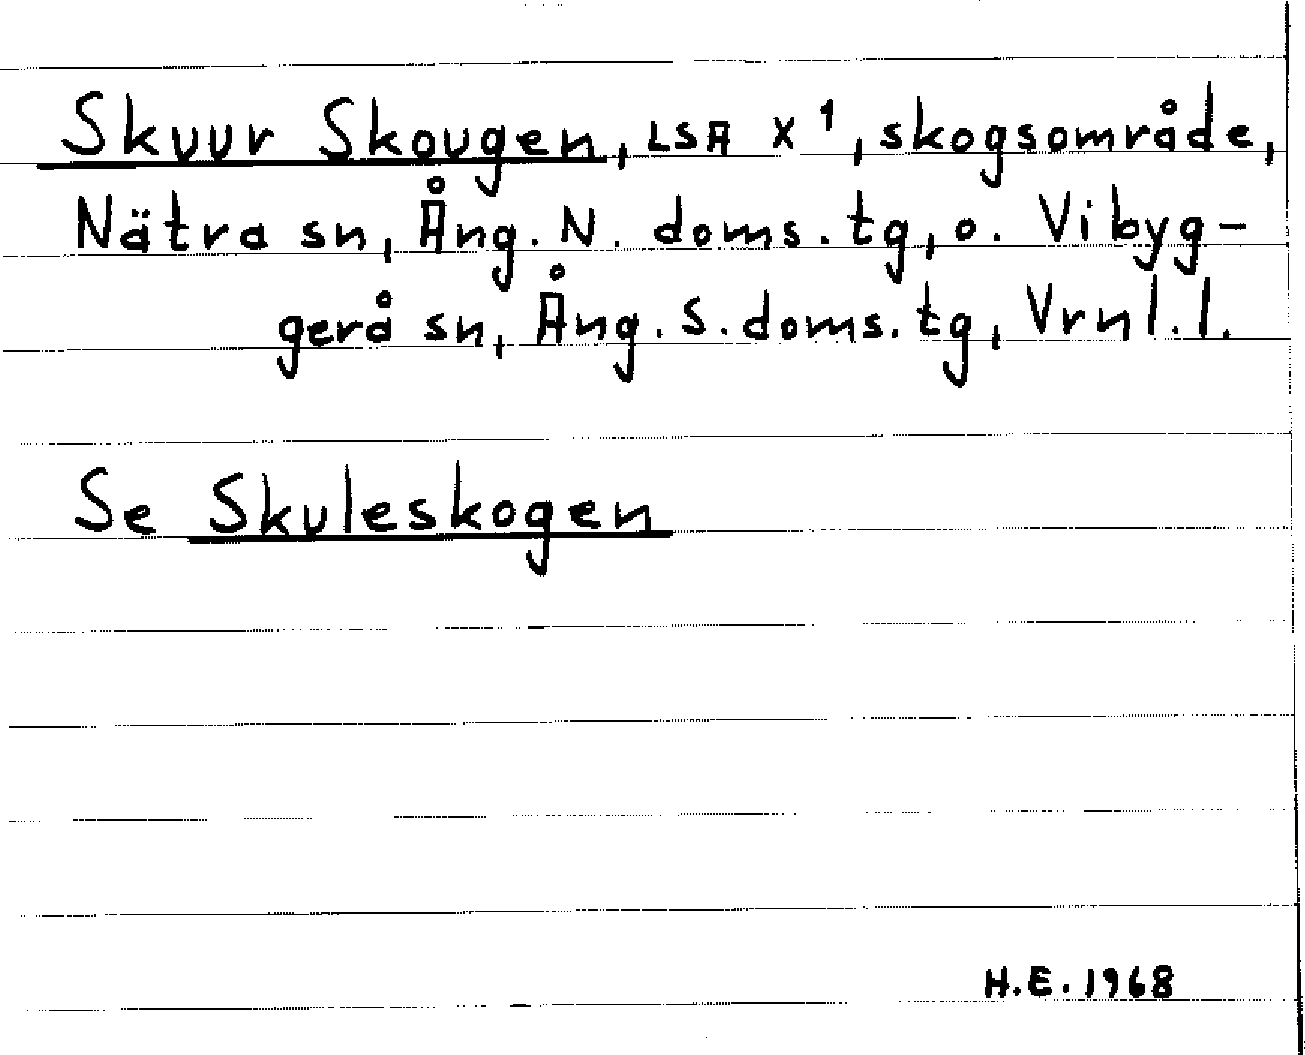 Skuur Skougen, LSA X¹, skogsområde,
Nätra sn, Ång. N. doms. tg, o. Vibyg-
gerå sn, Ång. S. doms. tg, Vrnl. l.
Se Skuleskogen
H.E. 1968